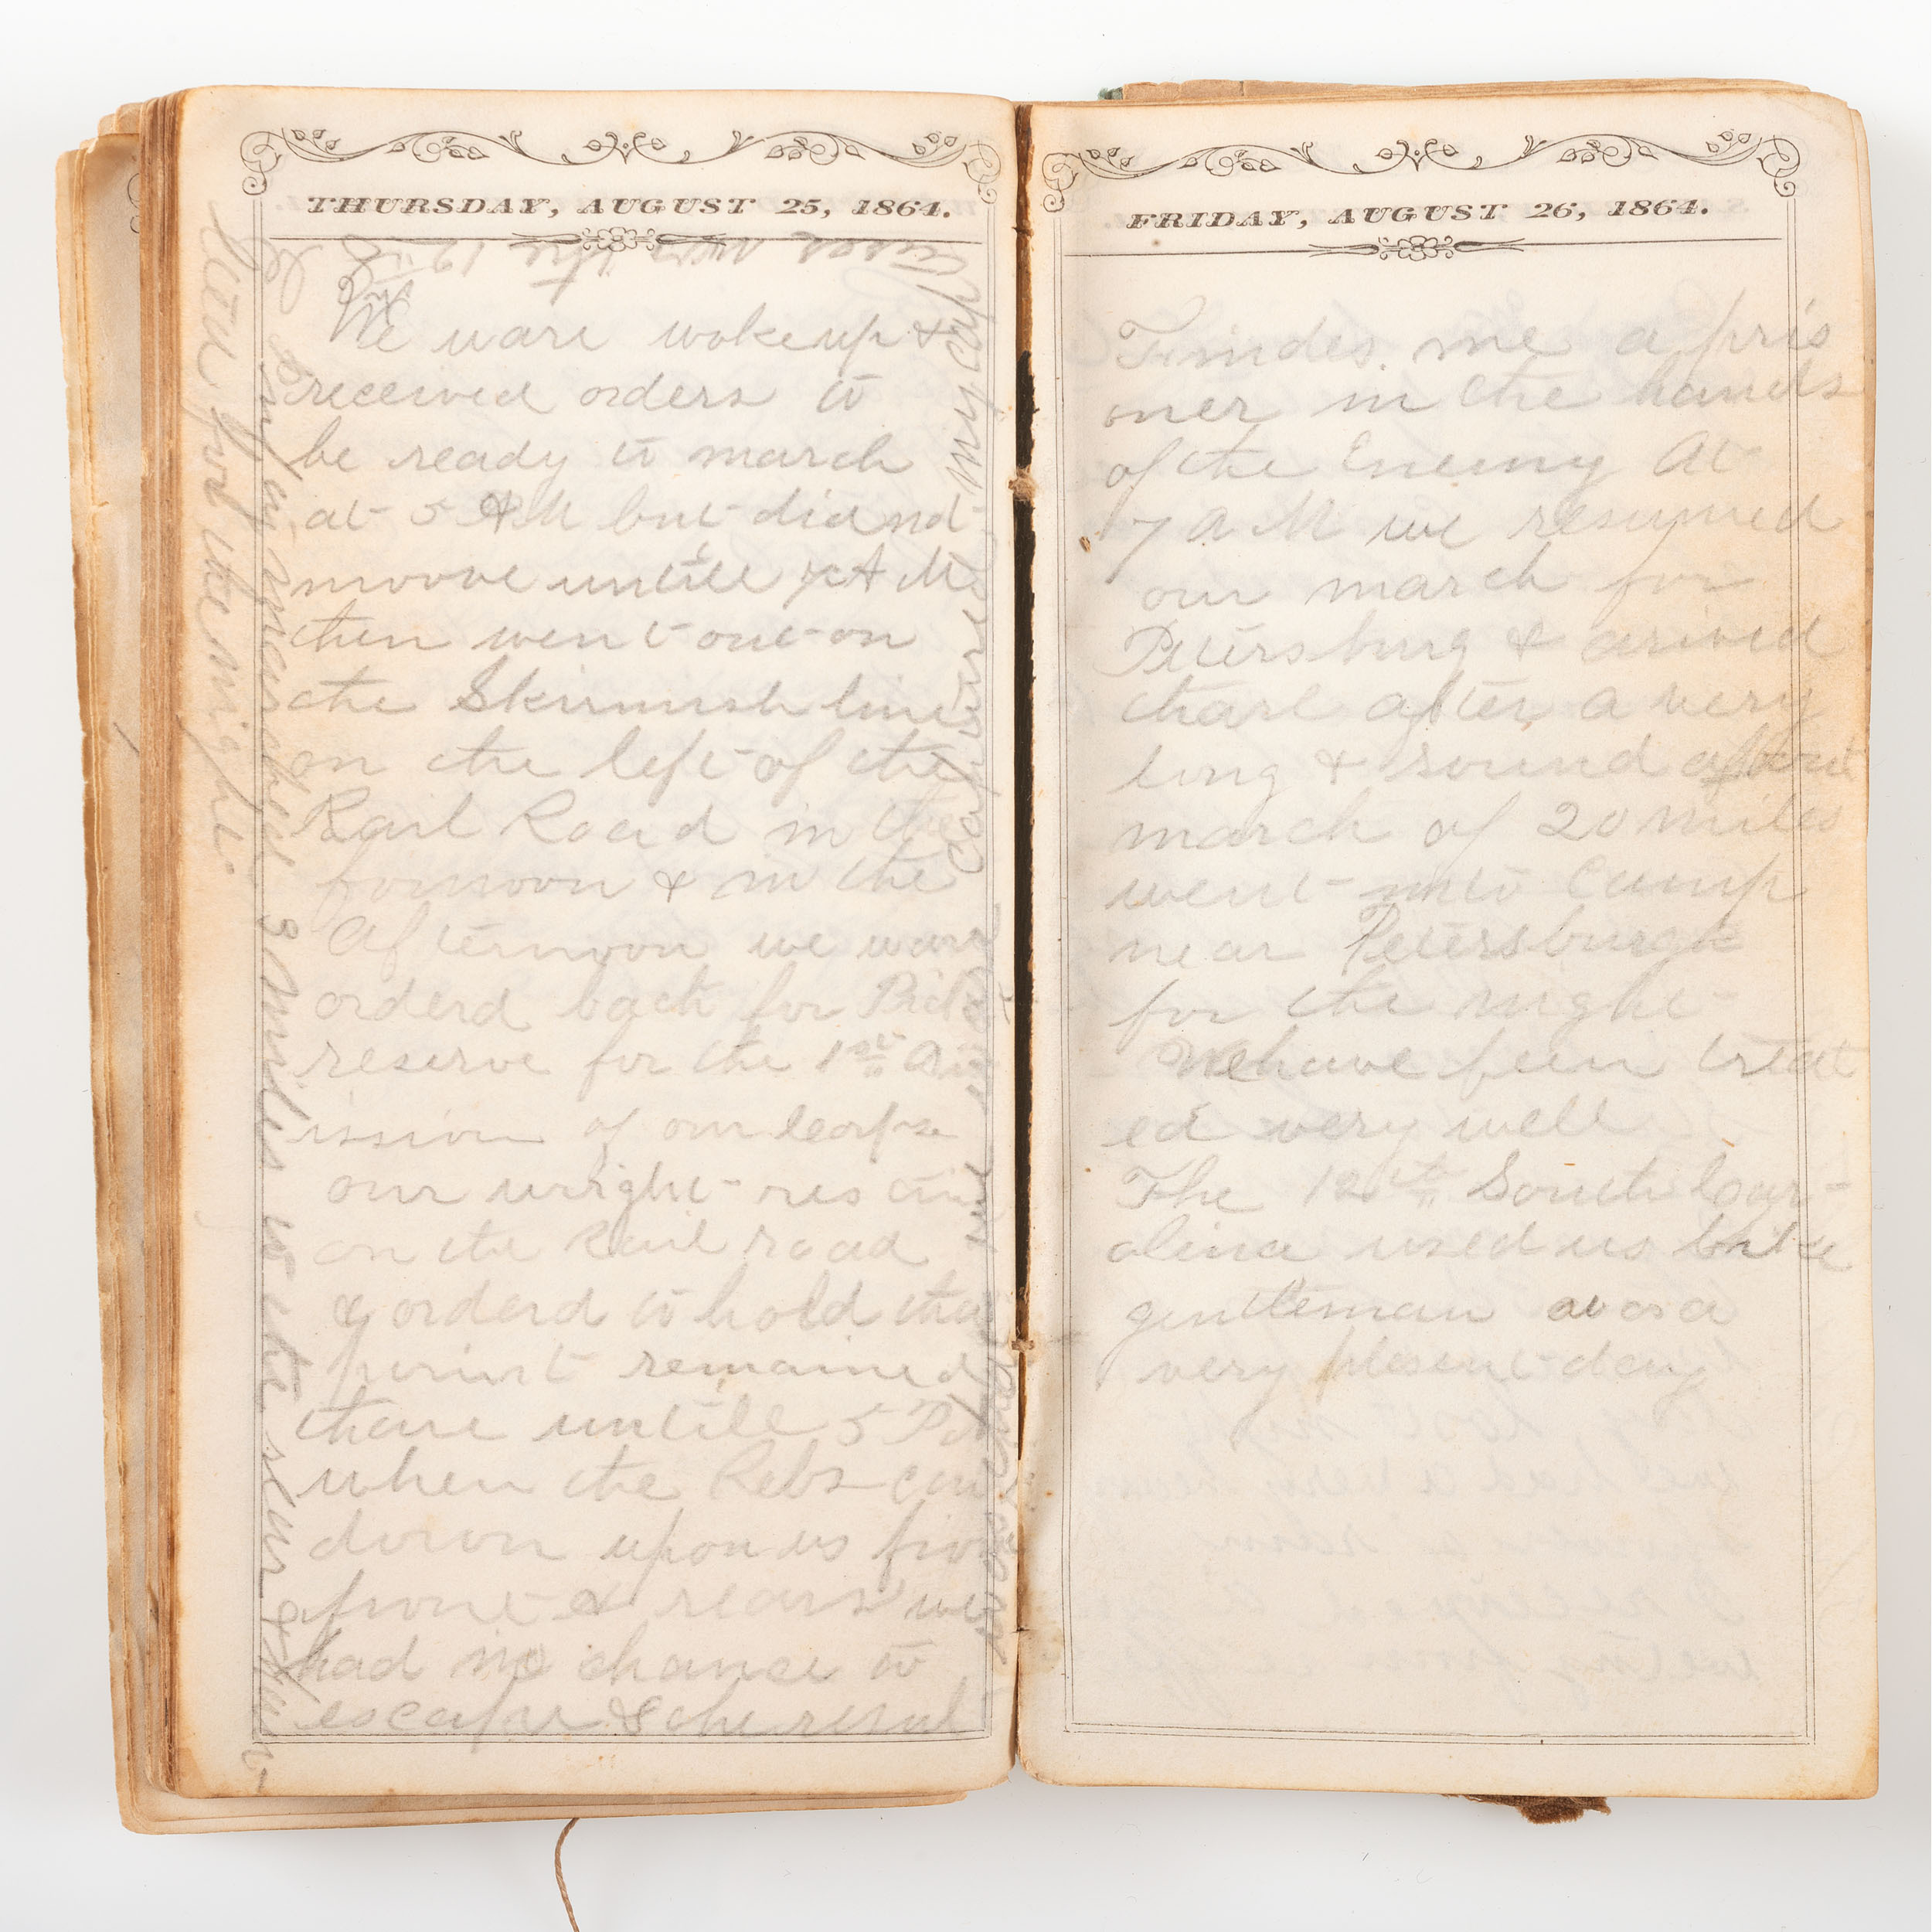 THURSDAY, AUGUST 25, 1864.
We ware woke up &
received orders to
be ready to march
at 5 AM but did not
moove untill 7 A M
then went out on
the Skirmish line
on the left of the
Rail Road in the
fornoon & in the
Afternoon we ware
orderd back for
reserve for the 1st
ission of our
our
on the Rail road
& orderd to hold that
point remained
thare untill 5 P M
when the Rebs
down upon us from
front & rear we
had no chance to
escape & the
was
captured
12th S C
& ware marched 3 miles to the rear &
for the night
FRIDAY, AUGUST 26, 1864.
Findes me a pris
oner in the hands
of the Enemy At
7 A M we resumed
our march for
Petersburg & arived
thare after a very
long & round about
march of 20 miles
went into Camp
near Petersburgh
for the night
We have been treat
ed very well
The 12th South Car-
olina used us like
gentleman
very plesent day